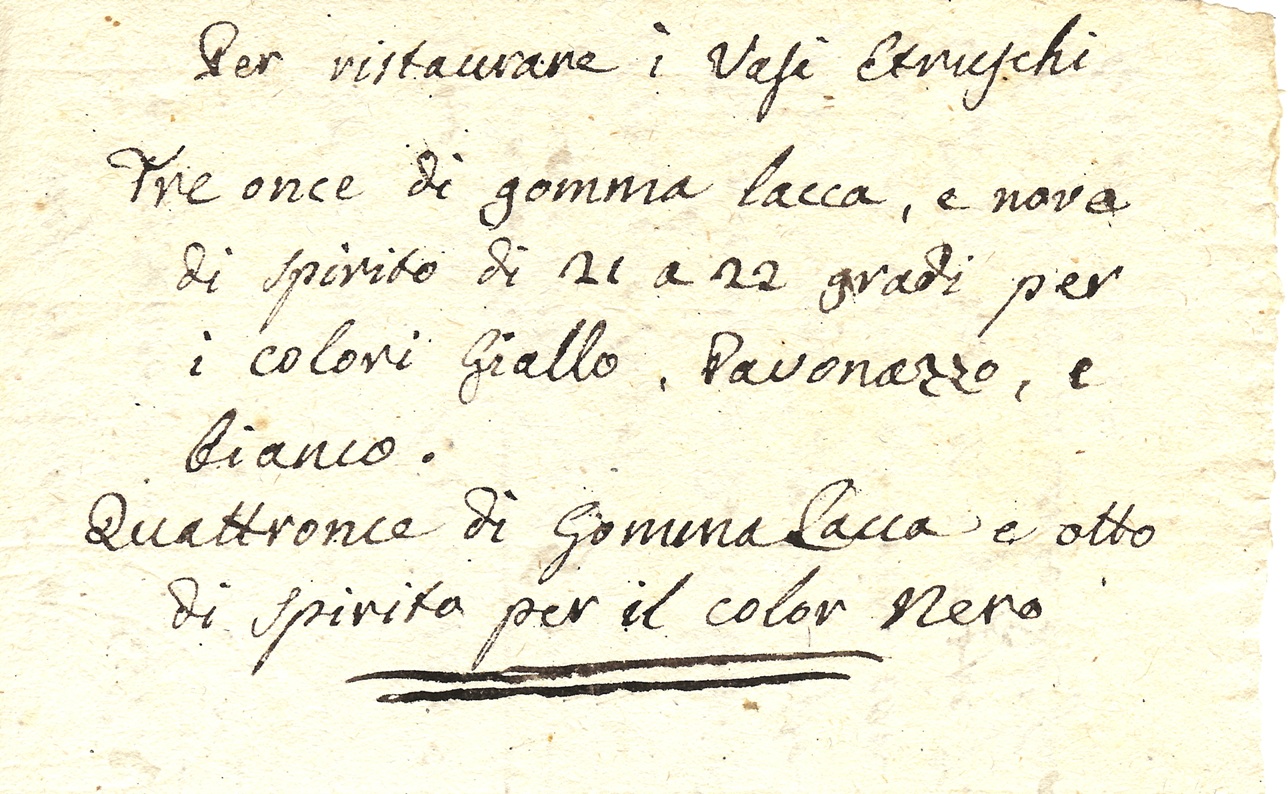 Per ristaurare i Vasi Etruschi
Tre once di gomma lacca, e nove
di spirito di 21 a 22 gradi per
i colori Giallo, Pavonazzo, e
bianco.
Quattronce di Gomma Lacca e otto
di spirito per il color Nero